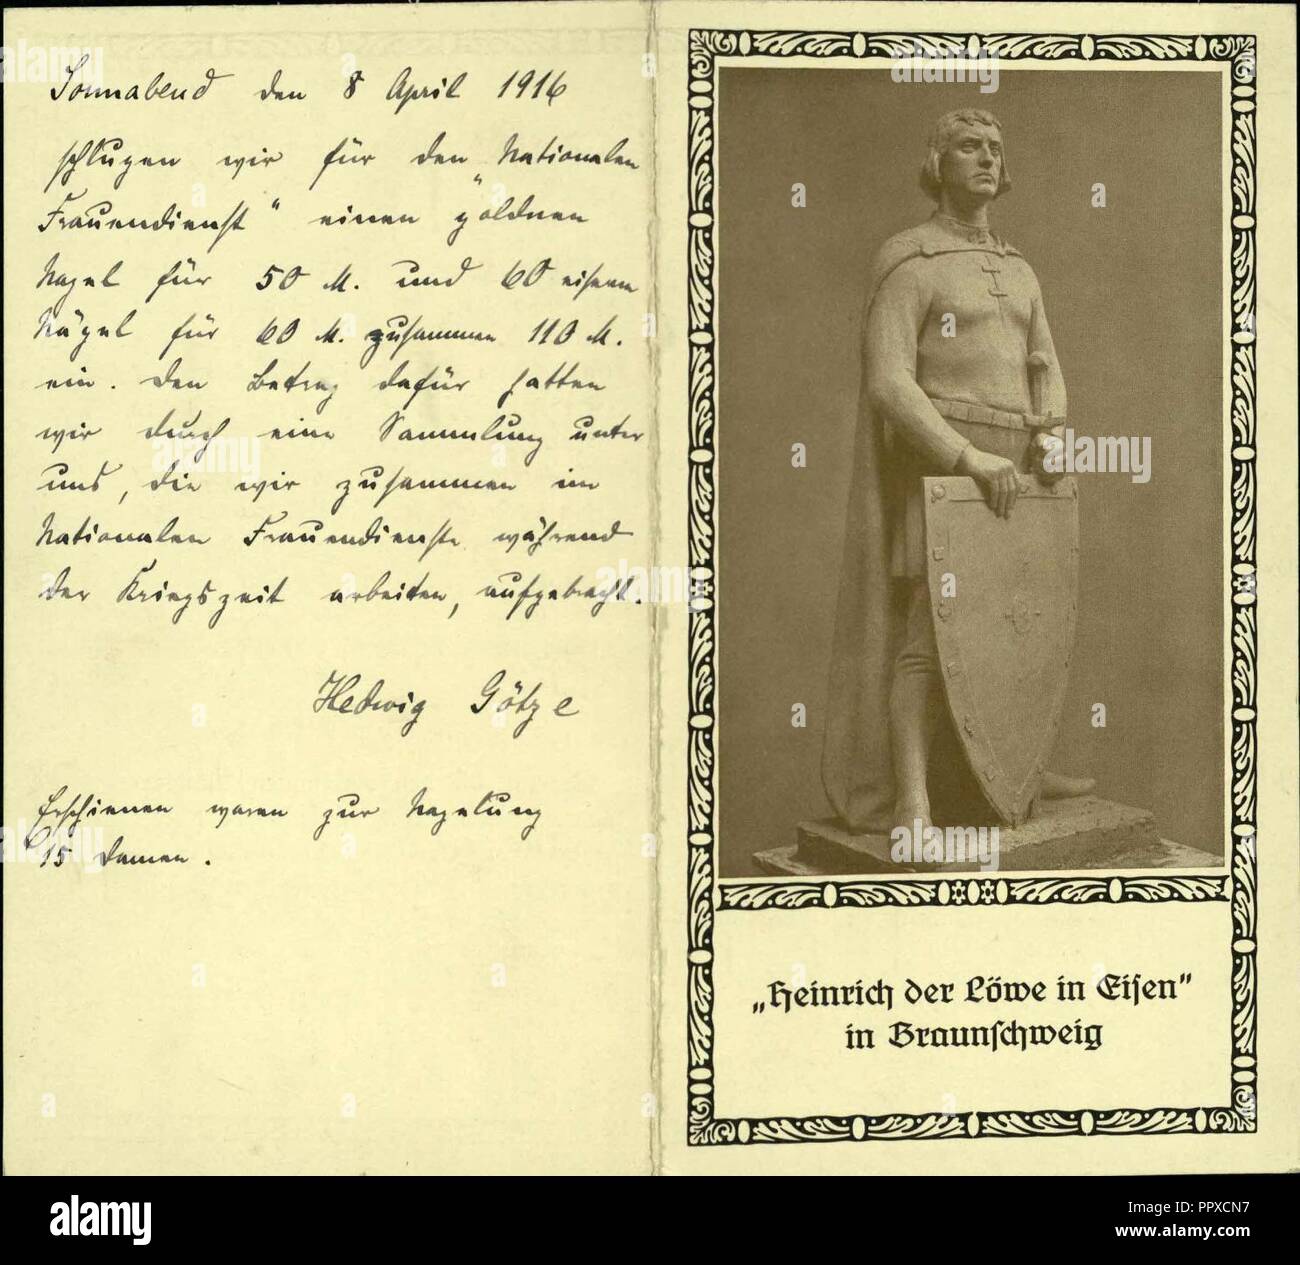 Sonnabend den 8 April 1916
schlugen wir für den „Nationalen
Frauendienst" einen goldnen
Nagel für 50 M. und 60 eiserne
Nägel für 60 M. zusammen 110 M.
ein. Den Betrag dafür hatten
wir durch eine Sammlung unter
uns, die wir zusammen im
Nationalen Frauendienste während
der Kriegszeit arbeiten, aufgebracht.
Hedwig Götze
Erschienen waren zur Nagelung
15 Damen.
„Heinrich der Löwe in Eisen"
in Braunschweig
alamy
a
alamy
Image ID: PPXCN7
www.alamy.com